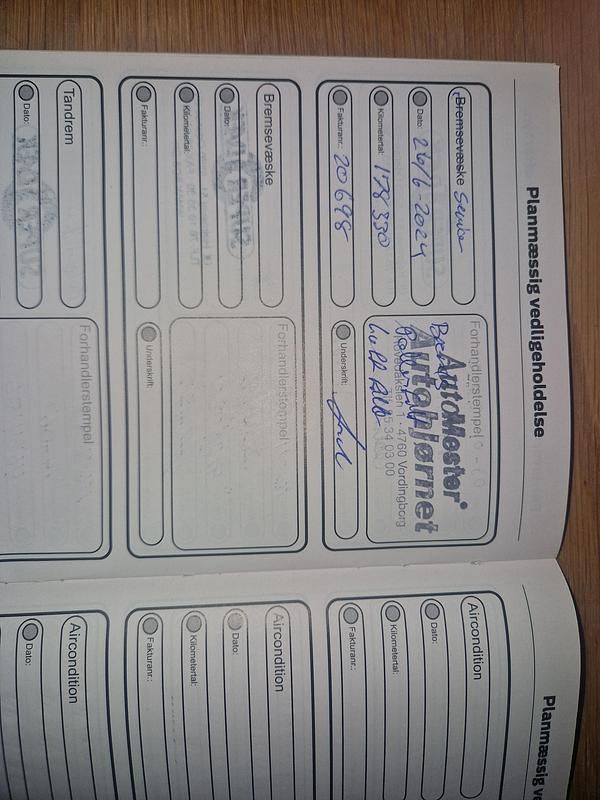 Planmæssig vedligeholdelse
Bremsevæske
Dato: 26/6-2024
Kilometertal: 178 330
Fakturanr.: 20698
Forhandlerstempel
AutoMester
Autohjørnet
Hovedakslen 1 · 4760 Vordingborg
34 03 00
Underskrift:
Bremsevæske
Dato:
Kilometertal:
Fakturanr.:
Forhandlerstempel
Underskrift:
Tandrem
Dato:
Forhandlerstempel
Planmæssig ve
Aircondition
Dato:
Kilometertal:
Fakturanr.:
Aircondition
Dato:
Kilometertal:
Fakturanr.:
Aircondition
Dato: